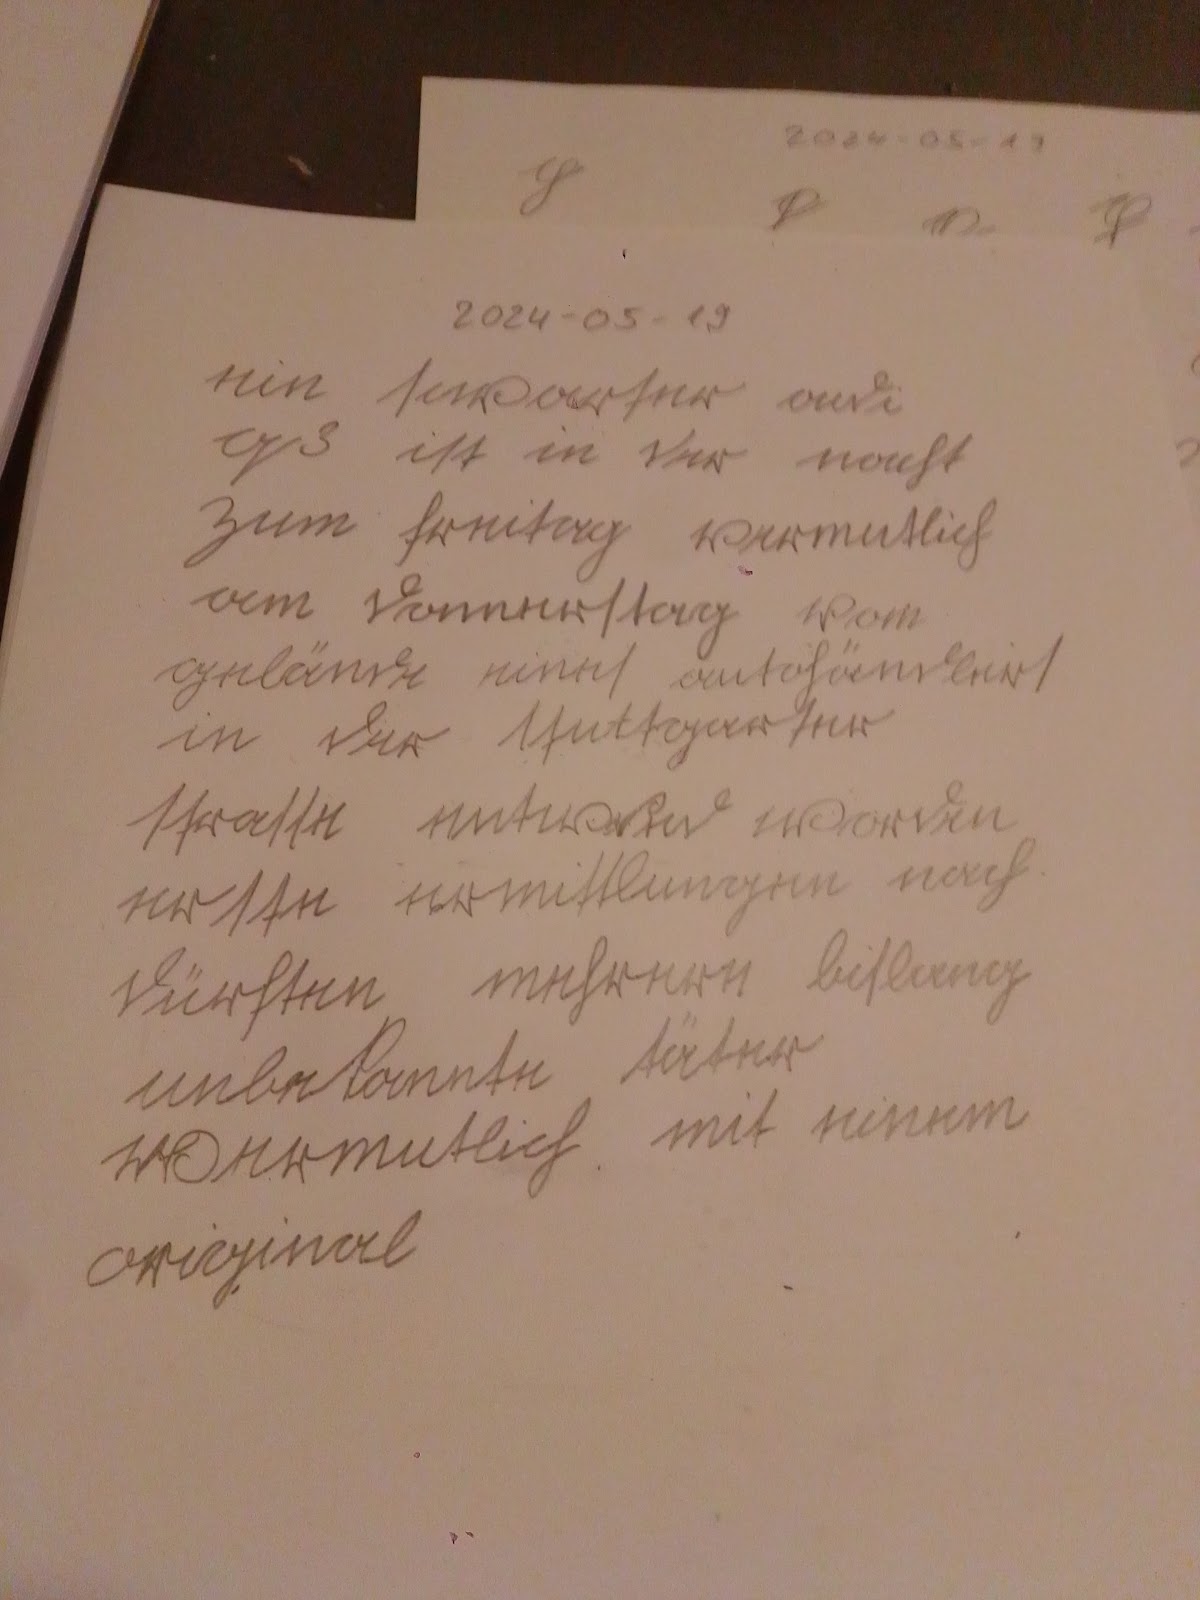 2024-05-19
2024-05-19
ein schwarzer audi
q3 ist in der nacht
zum freitag vermutlich
am donnerstag vom
gelände eines autohändlers
in der stuttgarter
strasse entwendet worden
ersten ermittlungen nach
dürften mehrere bislang
unbekannte täter
vermutlich mit einem
original